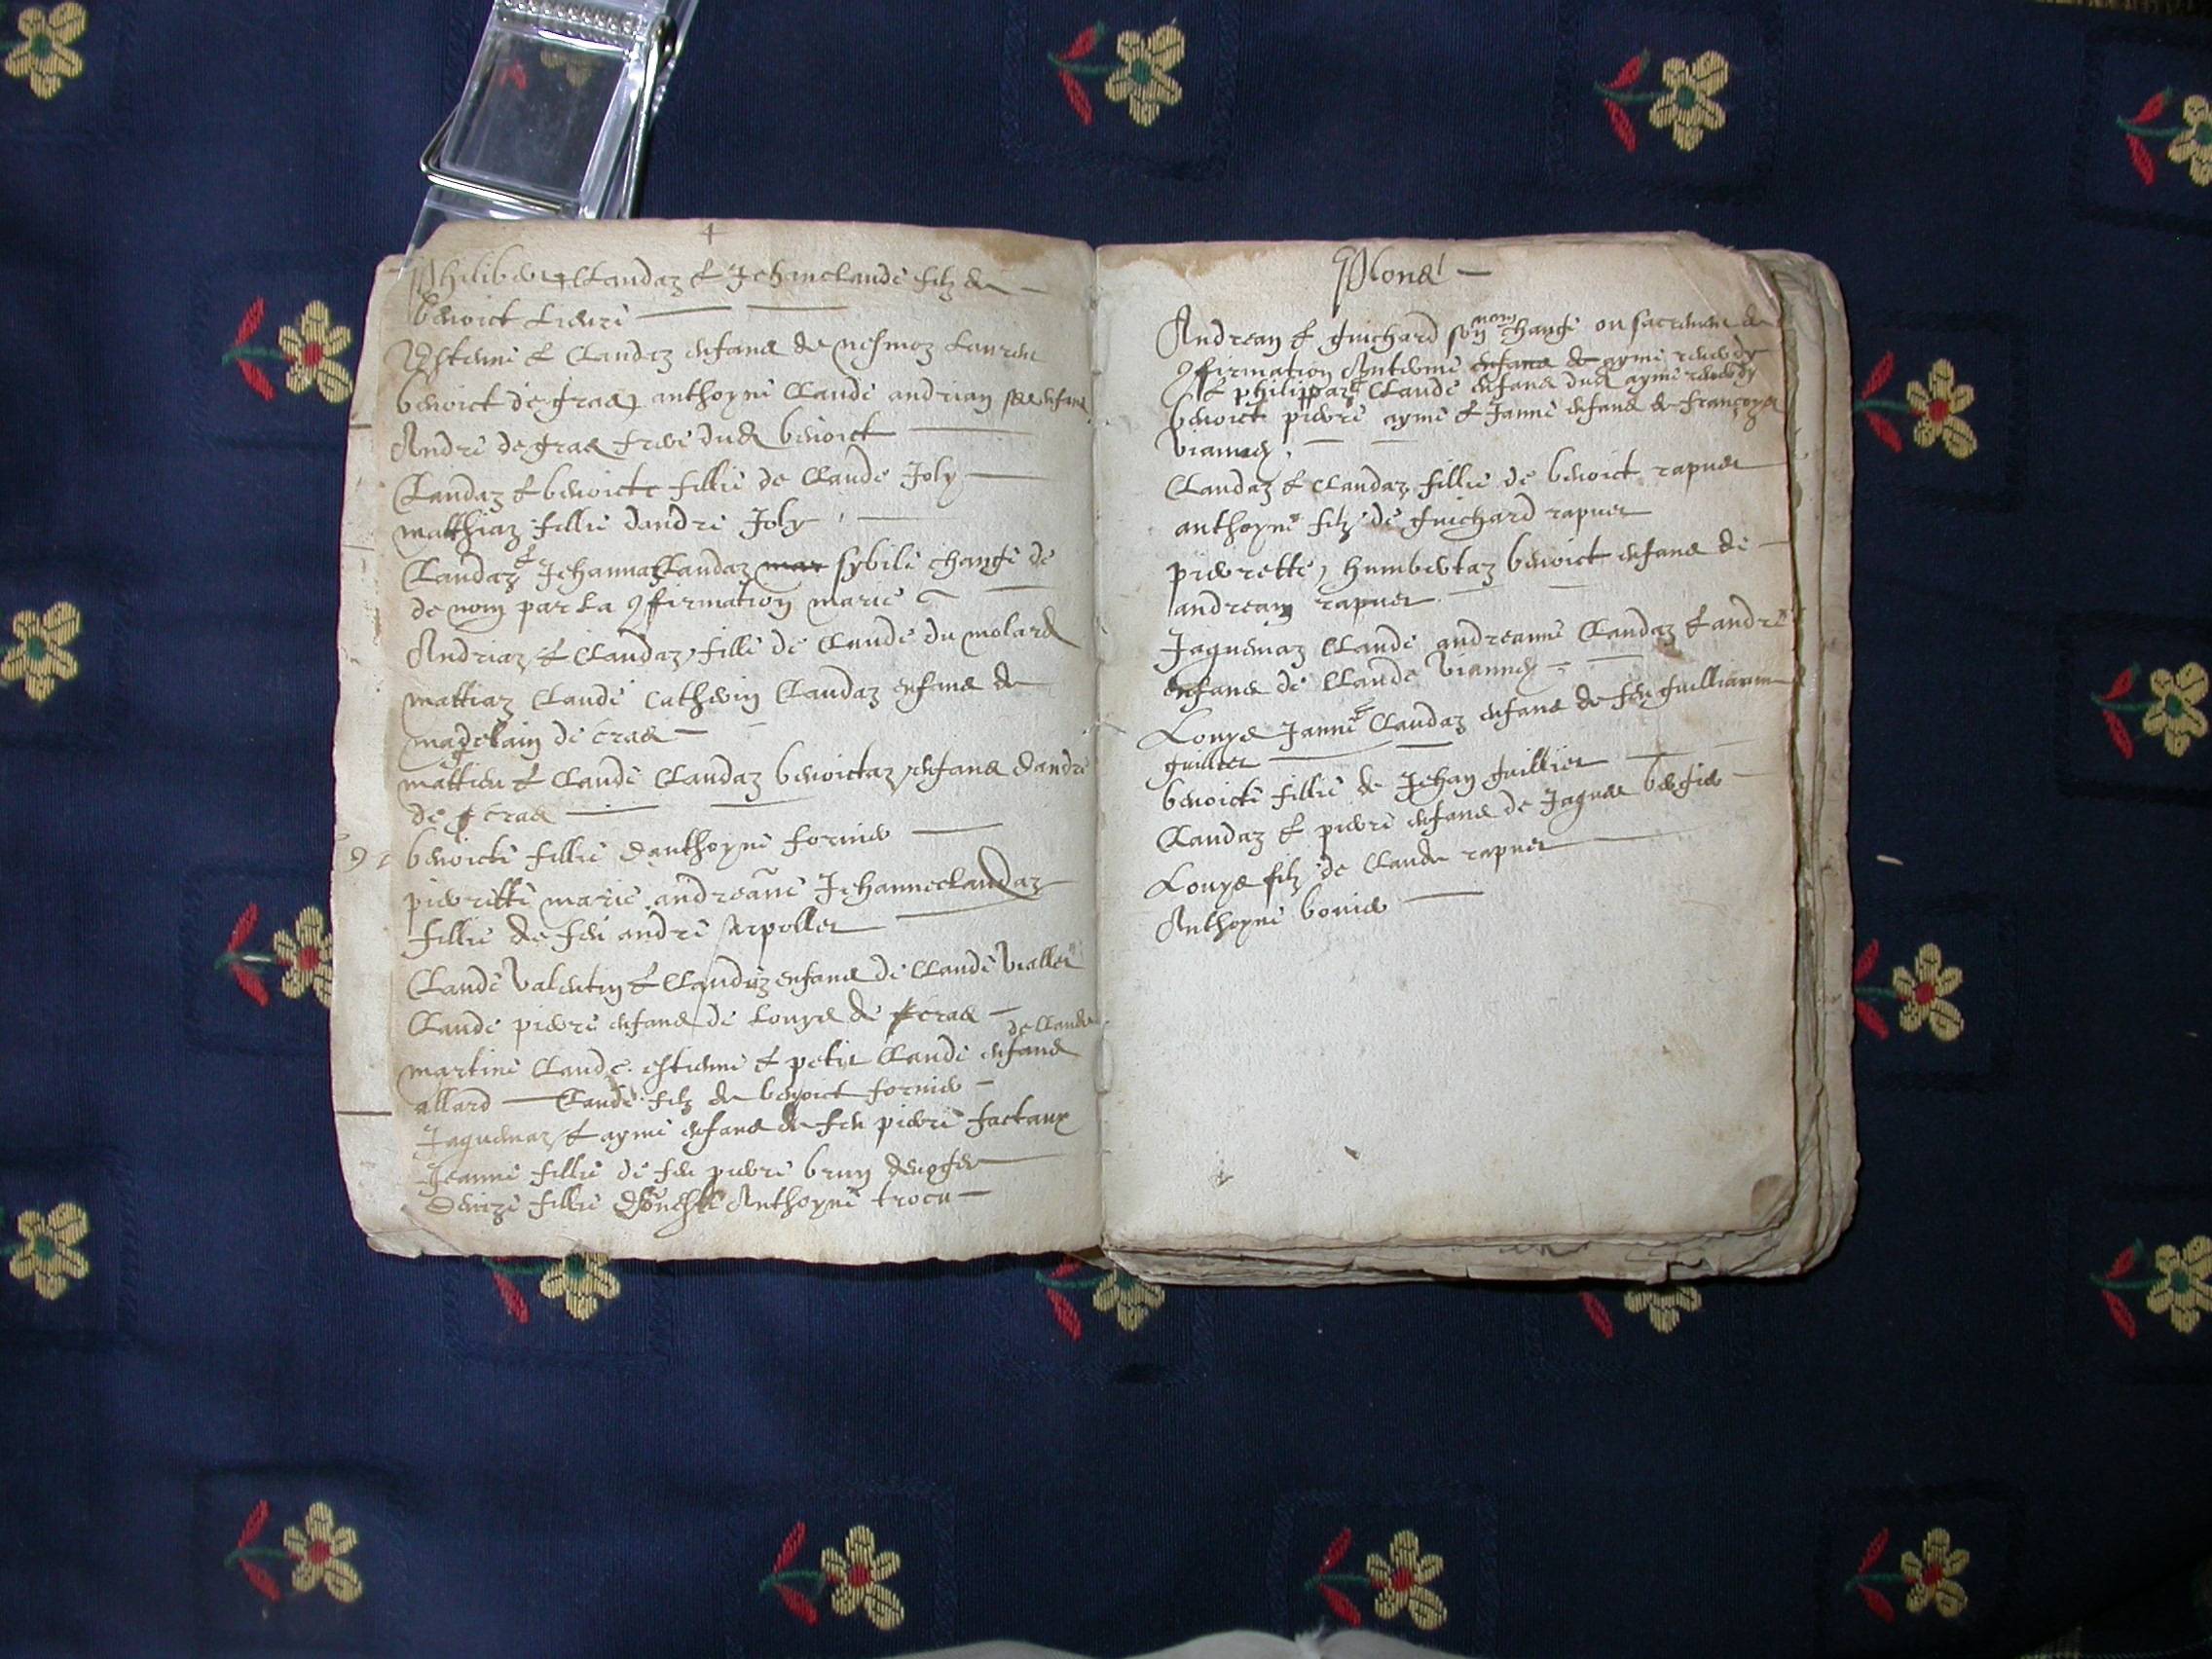 4
Philibert Claudaz & Jehanclaude filz de
benoict Livure
Estienne & Claudaz enfans de nesmoz Lauren
benoict de graes anthoyne Claude andrian ses enfans
Andre de graes frere dud benoict
Claudaz & benoicte fillie de Claude Joly
matthiaz fillie dandre Joly
Claudaz & Jehannaz Claudaz mar sybile change de
de nom par La 9firmation marie
Andriaz & Claudaz fille de Claude du molard
mattiaz Claude Catherin Claudaz enfans de
magdelain de Cras
mattieu & Claude Claudaz benoictaz enfans dandre
de Cras
benoicte fillie danthoyne fornier
pierrette marie andreane Jehanneclaudaz
fillie de feu andre
Claude Valentin & Claudaz enfans de Claude Viallet
Claude pierre enfans de Louys de Cras
de Claude
martine Claude estienne & petit Claude enfans
allard Claude filz de benoict fornier
Jaquemaz & ayme enfans de feu pierre factaux
Jeanne fillie de feu pierre brun
Denize fillie dhoneste Anthoyne trocu
Plone
Andrean & guichard son nom change ou sacrement de
9firmation Antoine enfans de ayme
& philippaz & Claude enfans dud ayme
benoict pierre ayme & Janne enfans de Françoys
Vianney
Claudaz & Claudaz fillie de benoict rapuet
anthoyne filz de guichard rapuet
pierrette, humbertaz benoict enfans de
andrean rapuet
Jaquemaz Claude andreanne Claudaz & andre
enfans de Claude Vianney
Louys Janne & Claudaz enfans de feu guilliaume
guillet
benoicte fillie de Jehan guilliet
Claudaz & pierre enfans de Jaques bergier
Louys filz de Claude rapuet
Anthoyne bovier